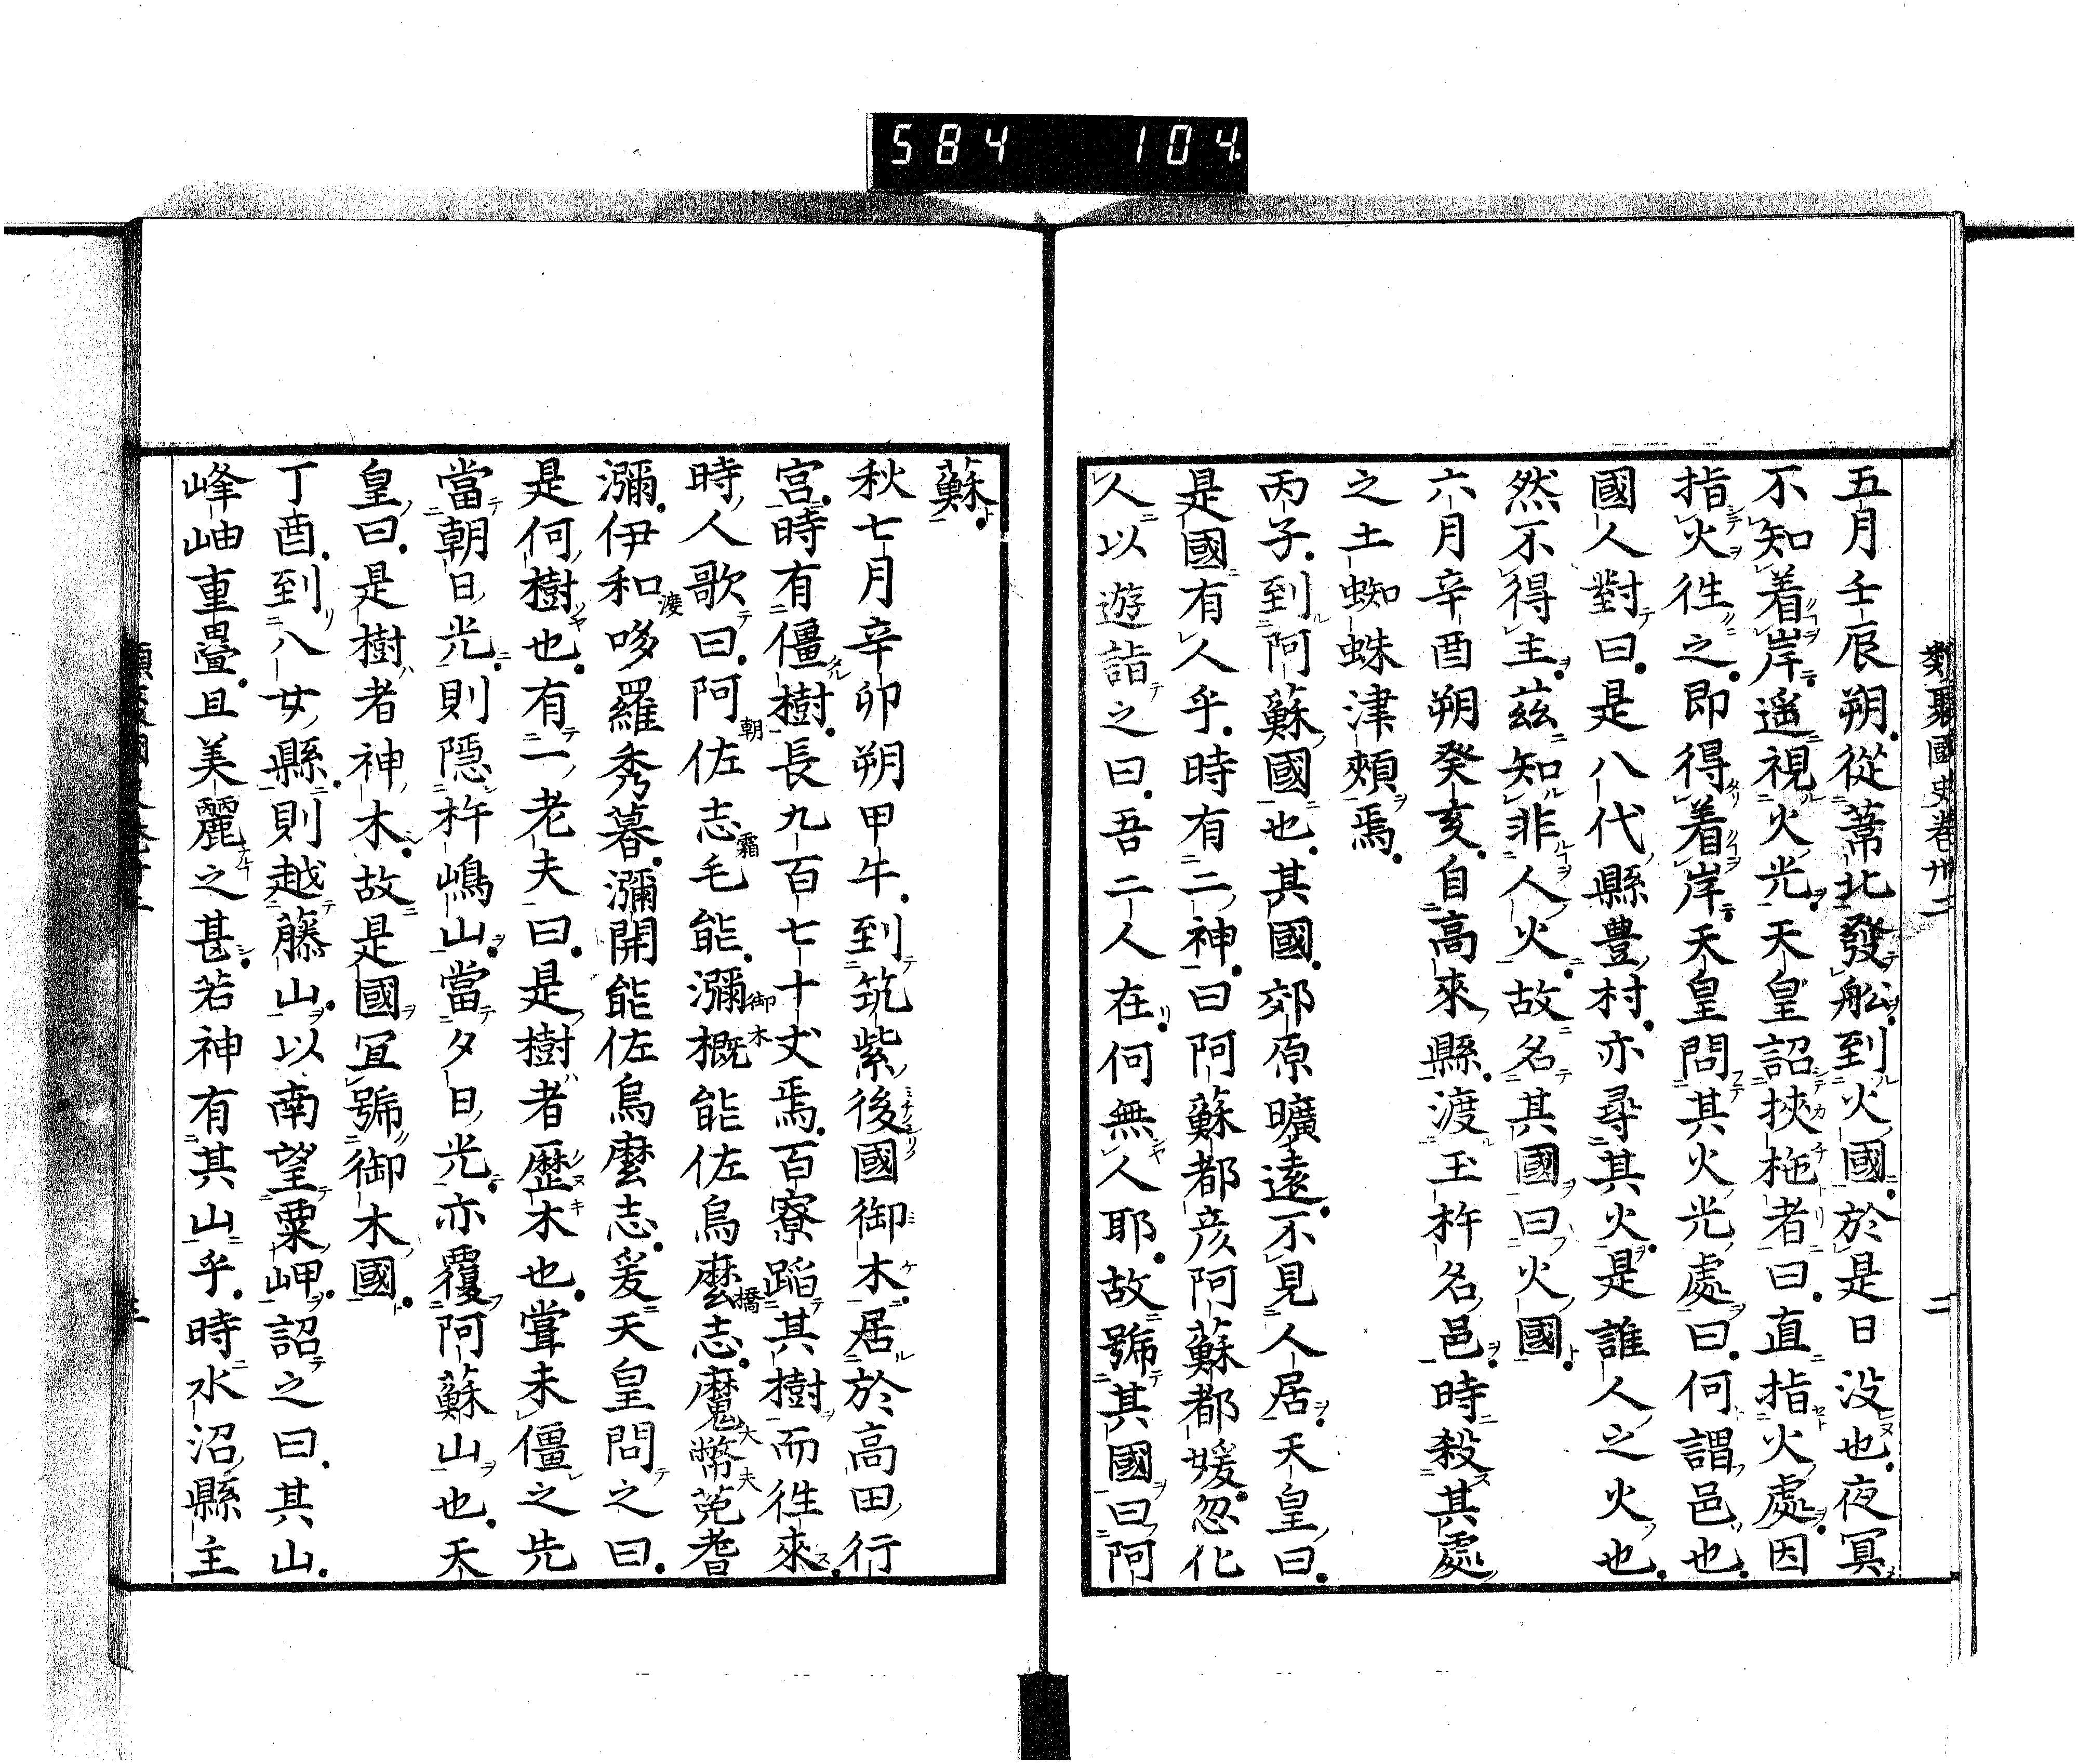 584 104.
類聚國史卷卅二 二
五月壬辰朔從葦北發船到火國於是日没也夜冥
不知着岸遥視火光天皇詔挾杪者曰直指火處因
指火徃之即得着岸天皇問其火光處曰何謂邑也
國人對曰是八代縣豊村亦尋其火是誰人之火也
然不得主茲知非人火故名其國曰火國
六月辛酉朔癸亥自高來縣渡玉杵名邑時殺其處
之土蜘蛛津頰焉
丙子到阿蘇國也其國郊原曠遠不見人居天皇曰
是國有人乎時有二神曰阿蘇都彦阿蘇都媛忽化
人以遊詣之曰吾二人在何無人耶故號其國曰阿
蘇
秋七月辛卯朔甲午到筑紫後國御木居於高田行
宮時有僵樹長九百七十丈焉百寮蹈其樹而徃來
時人歌曰阿佐志毛能瀰概能佐烏麼志魔幣菟耆
瀰伊和哆羅秀暮瀰開能佐烏麼志爰天皇問之曰
是何樹也有一老夫曰是樹者歷木也嘗未僵之先
當朝日光則隠杵嶋山當夕日光亦覆阿蘇山也天
皇曰是樹者神木故是國冝號御木國
丁酉到八女縣則越藤山以南望粟岬詔之曰其山
峰岫重疊且美麗之甚若神有其山乎時水沼縣主